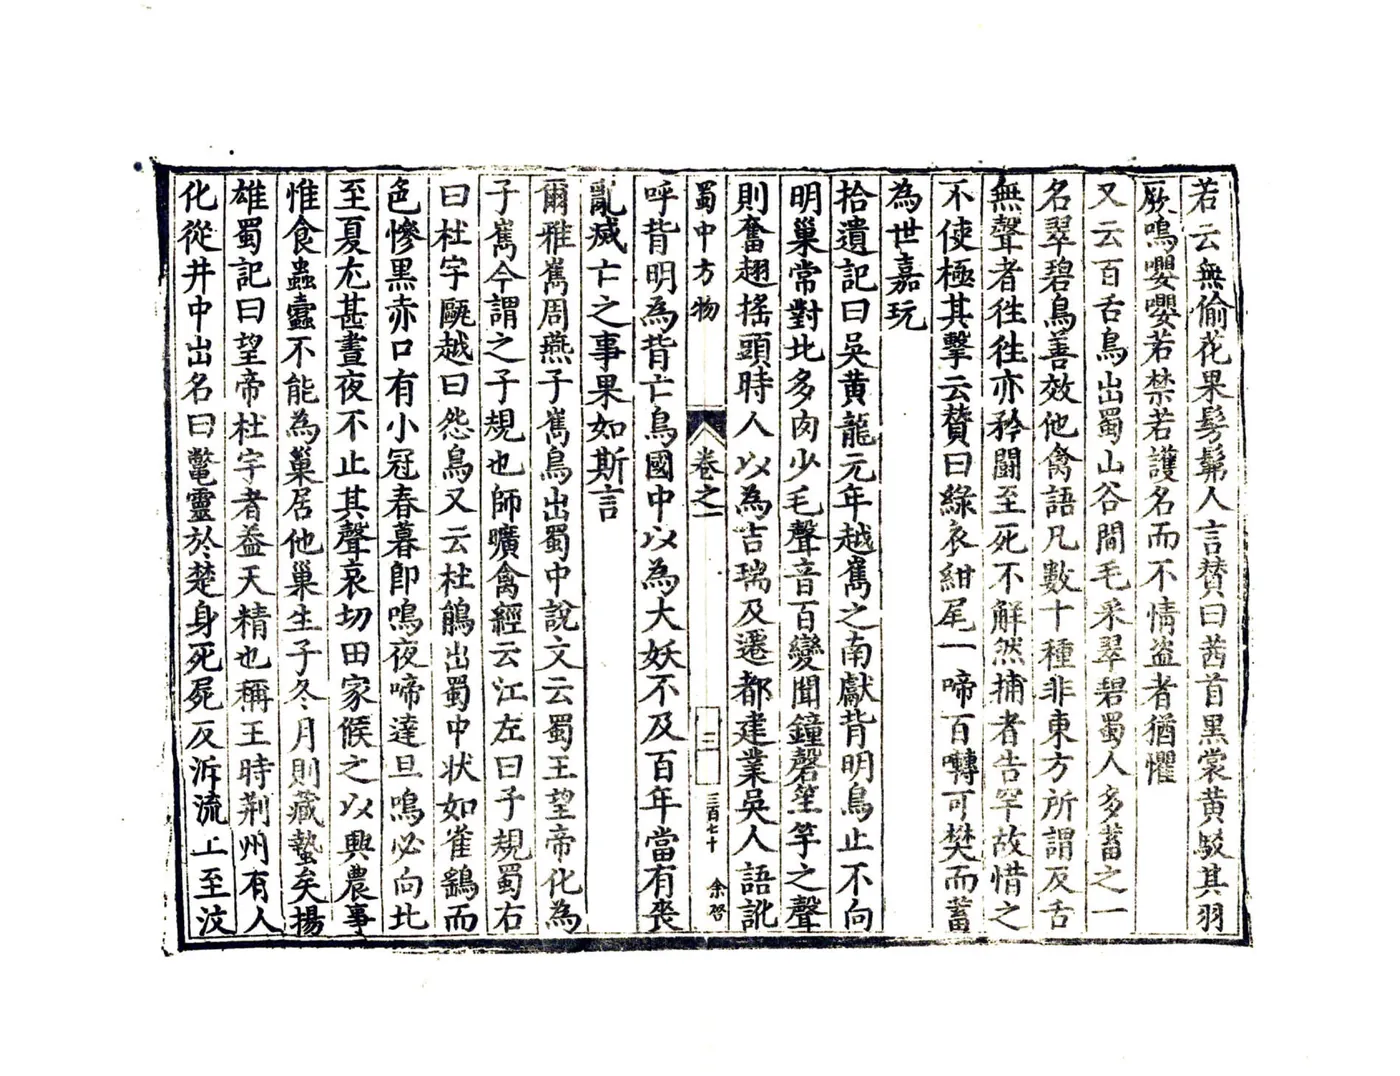 若云無偷花果髣髴人言賛曰茜首黑裳黄駁其羽
厥鳴嚶嚶若禁若護名而不情盜者猶懼
又云百舌鳥出蜀山谷間毛采翠碧蜀人多蓄之一
名翠碧鳥善效他禽語凡數十種非東方所謂反舌
無聲者徃徃亦矜闘至死不解然捕者告罕故惜之
不使極其擊云賛曰綠衣紺尾一啼百囀可樊而蓄
為世嘉玩
拾遺記曰吳黄龍元年越巂之南獻背明鳥止不向
明巢常對北多肉少毛聲音百變聞鐘磬笙竽之聲
則奮翅搖頭時人以為吉瑞及遷都建業吳人語訛
蜀中方物 卷之一 三 三百七十 余啓
呼背明為背亡鳥國中以為大妖不及百年當有喪
亂滅亡之事果如斯言
爾雅巂周燕子巂鳥出蜀中說文云蜀王望帝化為
子巂今謂之子規也師曠禽經云江左曰子規蜀右
曰杜宇甌越曰怨鳥又云杜鵑出蜀中状如雀鷂而
色慘黑赤口有小冠春暮即鳴夜啼達旦鳴必向北
至夏尤甚晝夜不止其聲哀切田家候之以興農事
惟食蟲蠹不能為巢居他巢生子冬月則藏蟄矣揚
雄蜀記曰望帝杜宇者葢天精也稱王時荆州有人
化從井中出名曰鼈靈於楚身死屍反泝流上至汶